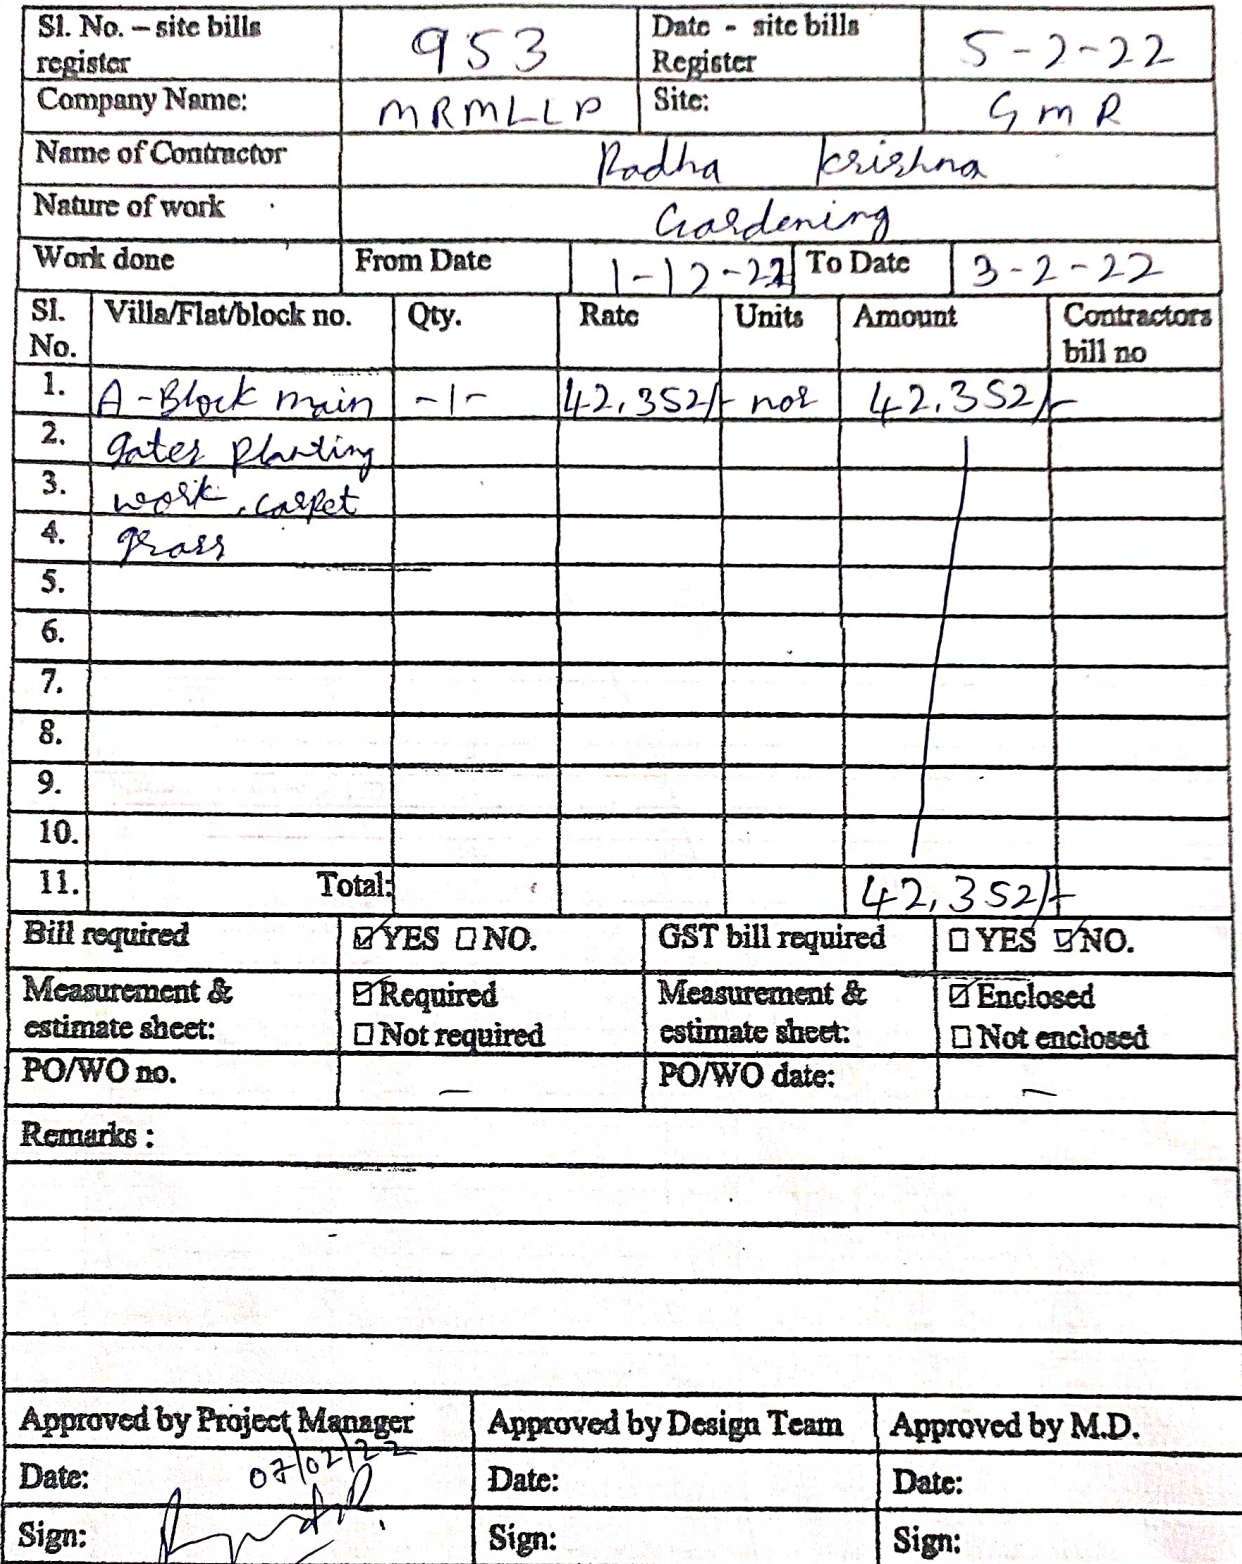 Sl. No. – site bills register 953 Date - site bills Register 5-2-22
Company Name: MRMLLP Site: GMR
Name of Contractor Radha Krishna
Nature of work Gardening
Work done From Date 1-12-21 To Date 3-2-22
Sl. No. Villa/Flat/block no. Qty. Rate Units Amount Contractors bill no
1. A-Block main -1- 42,352/- nos 42,352/-
2. gates planting
3. work, carpet
4. grass
5.
6.
7.
8.
9.
10.
11. Total: 42,352/-
Bill required ☑YES ☐NO. GST bill required ☐YES ☑NO.
Measurement & estimate sheet: ☑Required ☐Not required Measurement & estimate sheet: ☑Enclosed ☐Not enclosed
PO/WO no. – PO/WO date: –
Remarks :
Approved by Project Manager Approved by Design Team Approved by M.D.
Date: 07/02/22 Date: Date:
Sign: Sign: Sign: